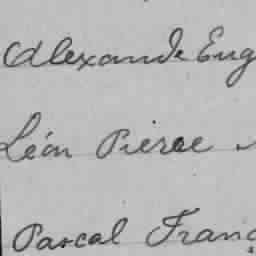 Alexande Eug
Léon Pierre
Pascal Franc